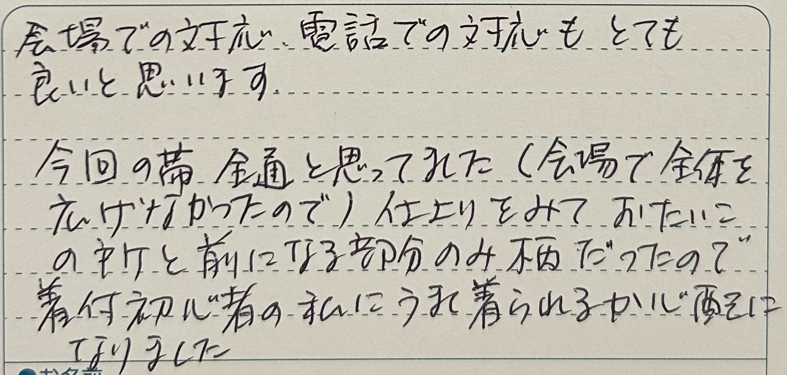 会場での対応、電話での対応も とても
良いと思います。
今回の帯 全通と思ってました(会場で全体を
広げなかったので)仕上りをみて おたいこ
のヶ所と前になる部分のみ柄だったので
着付初心者の私にうまく着られるか心配に
なりました
お名前